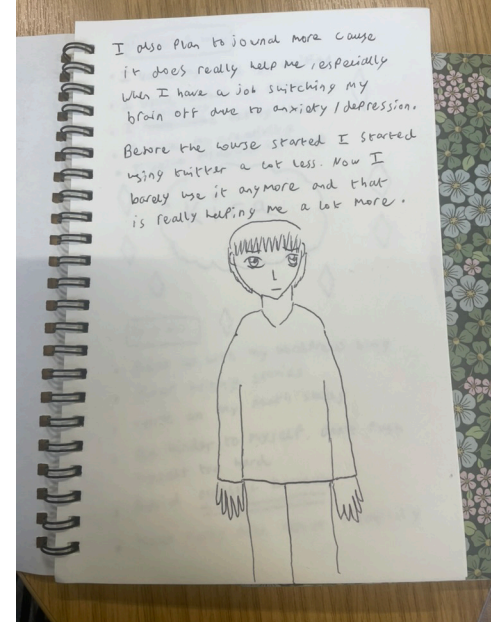 I also plan to jounal more cause
it does really help me, especially
when I have a job switching my
brain off due to anxiety / depression.
Before the course started I started
using twitter a lot less. Now I
barely use it anymore and that
is really helping me a lot more.